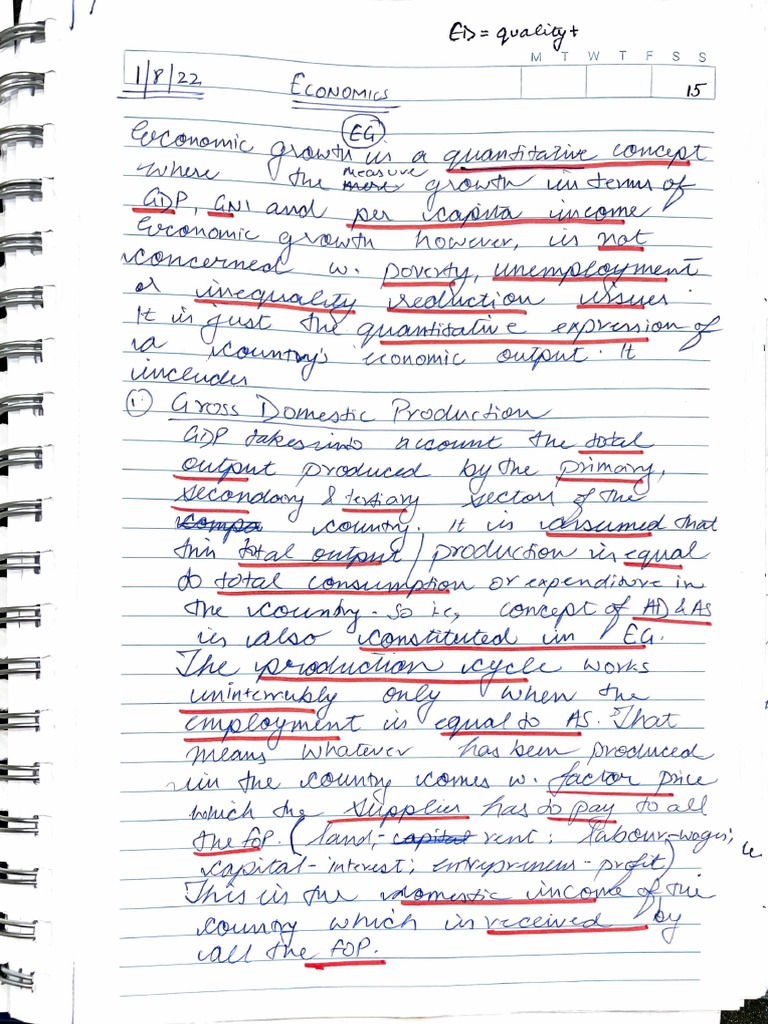 ED = quality +
M T W T F S S
1/8/22 ECONOMICS 15
EG
Economic growth is a quantitative concept
where the measure growth in terms of
GDP, GNI and per capita income
Economic growth however, is not
concerned w. poverty, unemployment
or inequality reduction issues.
It is just the quantitative expression of
a country's economic output. It
includes
1. Gross Domestic Production
GDP takes into account the total
output produced by the primary,
secondary & tertiary sectors of the
compa country. It is assumed that
this total output / production is equal
to total consumption or expenditure in
the country. So ie, concept of AD & AS
is also constituted in EG.
The production cycle works
uninterrubly only when the
employment is equal to AS. That
means whatever has been produced
in the country comes w. factor price
which the supplier has to pay to all
the FOP. (land - capital rent; labour - wages;
capital - interest; entrepreneur - profit)
This is the domestic income of the
country which is received by
all the FOP.